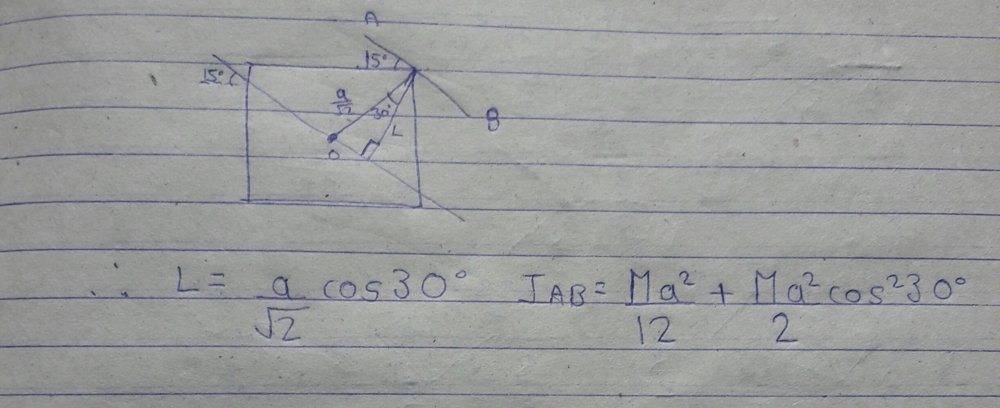 A
15°
15°
a/√2
30°
L
B
O
∴ L = a/√2 cos30° I_AB = Ma²/12 + Ma²/2 cos²30°